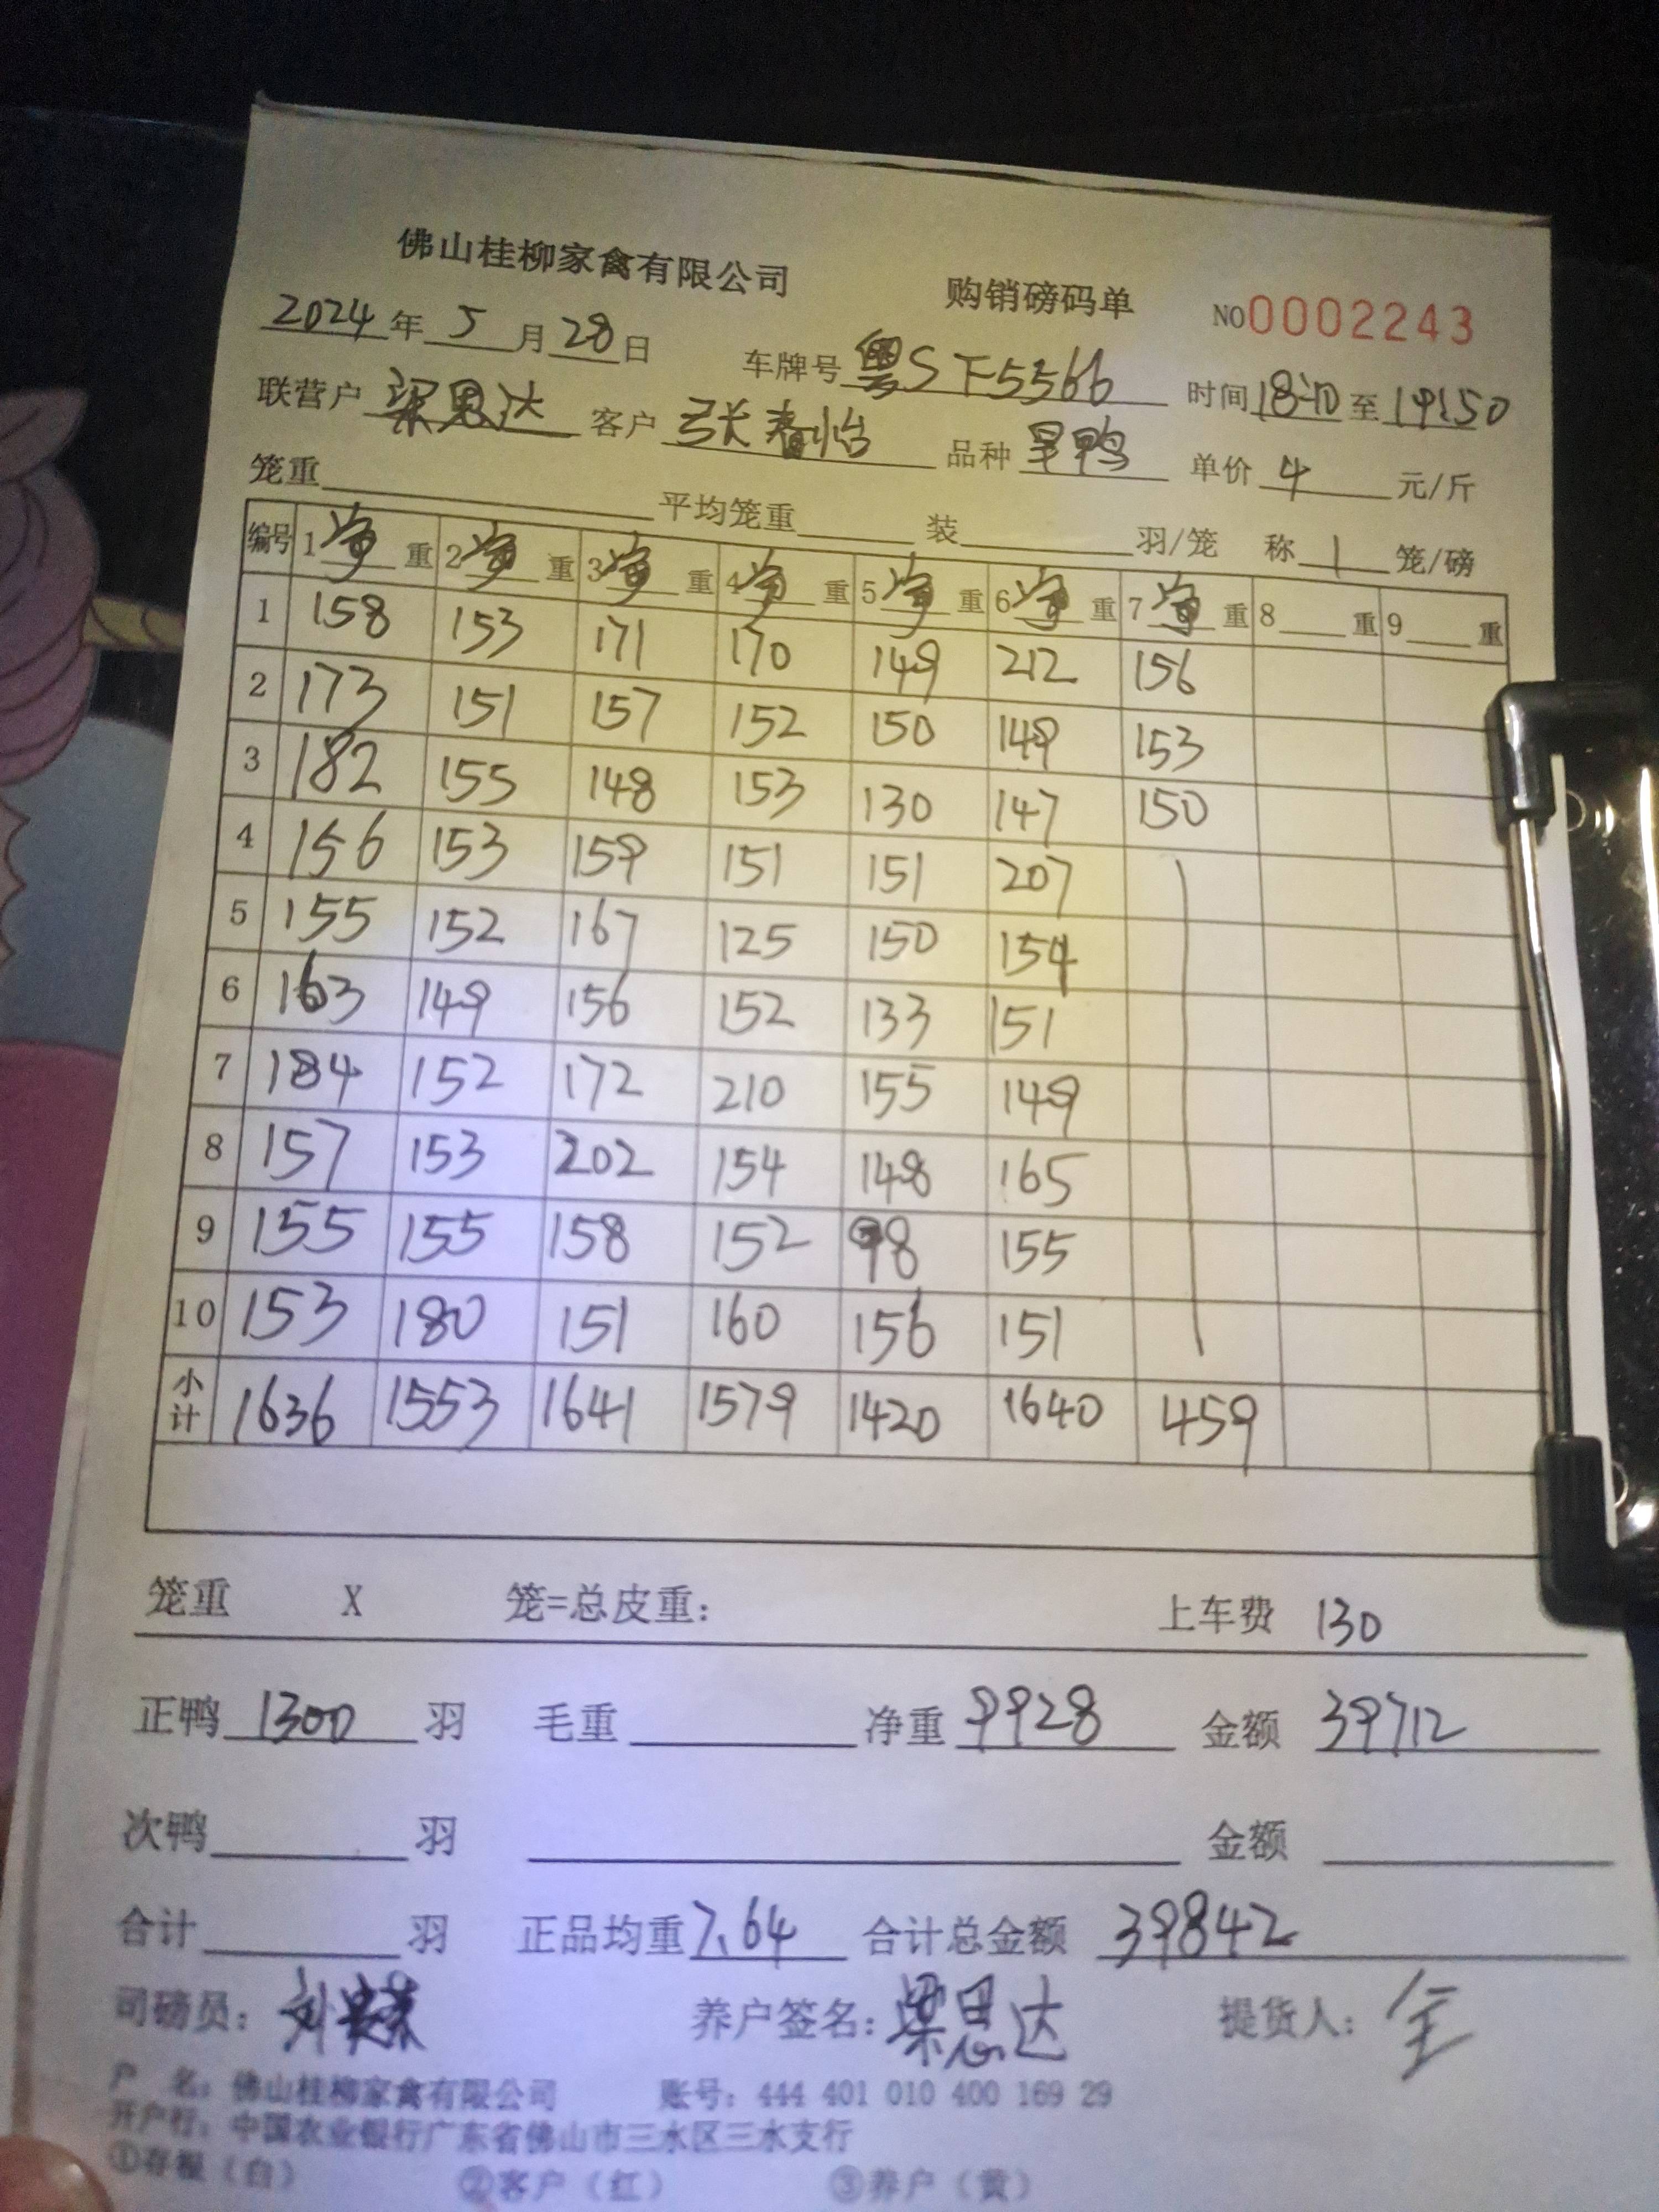 佛山桂柳家禽有限公司 购销磅码单 NO0002243
2024年5月28日 车牌号 粤S F5566 时间 18:10 至 19:50
联营户 梁恩达 客户 张春怡 品种 旱鸭 单价 4 元/斤
笼重 平均笼重 装 羽/笼 称 1 笼/磅
编号 1净重 2净重 3净重 4净重 5净重 6净重 7净重 8 重 9 重
1 158 153 171 170 149 212 156
2 173 151 157 152 150 149 153
3 182 155 148 153 130 147 150
4 156 153 159 151 151 207
5 155 152 167 125 150 154
6 163 149 156 152 133 151
7 184 152 172 210 155 149
8 157 153 202 154 148 165
9 155 155 158 152 98 155
10 153 180 151 160 156 151
小计 1636 1553 1641 1579 1420 1640 459
笼重 X 笼=总皮重： 上车费 130
正鸭 1300 羽 毛重 净重 9928 金额 39712
次鸭 羽 金额
合计 羽 正品均重 7.64 合计总金额 39842
司磅员： 刘 养户签名： 梁恩达 提货人：
户 名：佛山桂柳家禽有限公司 账号：444 401 010 400 169 29
开户行：中国农业银行广东省佛山市三水区三水支行
①存根（白） ②客户（红） ③养户（黄）